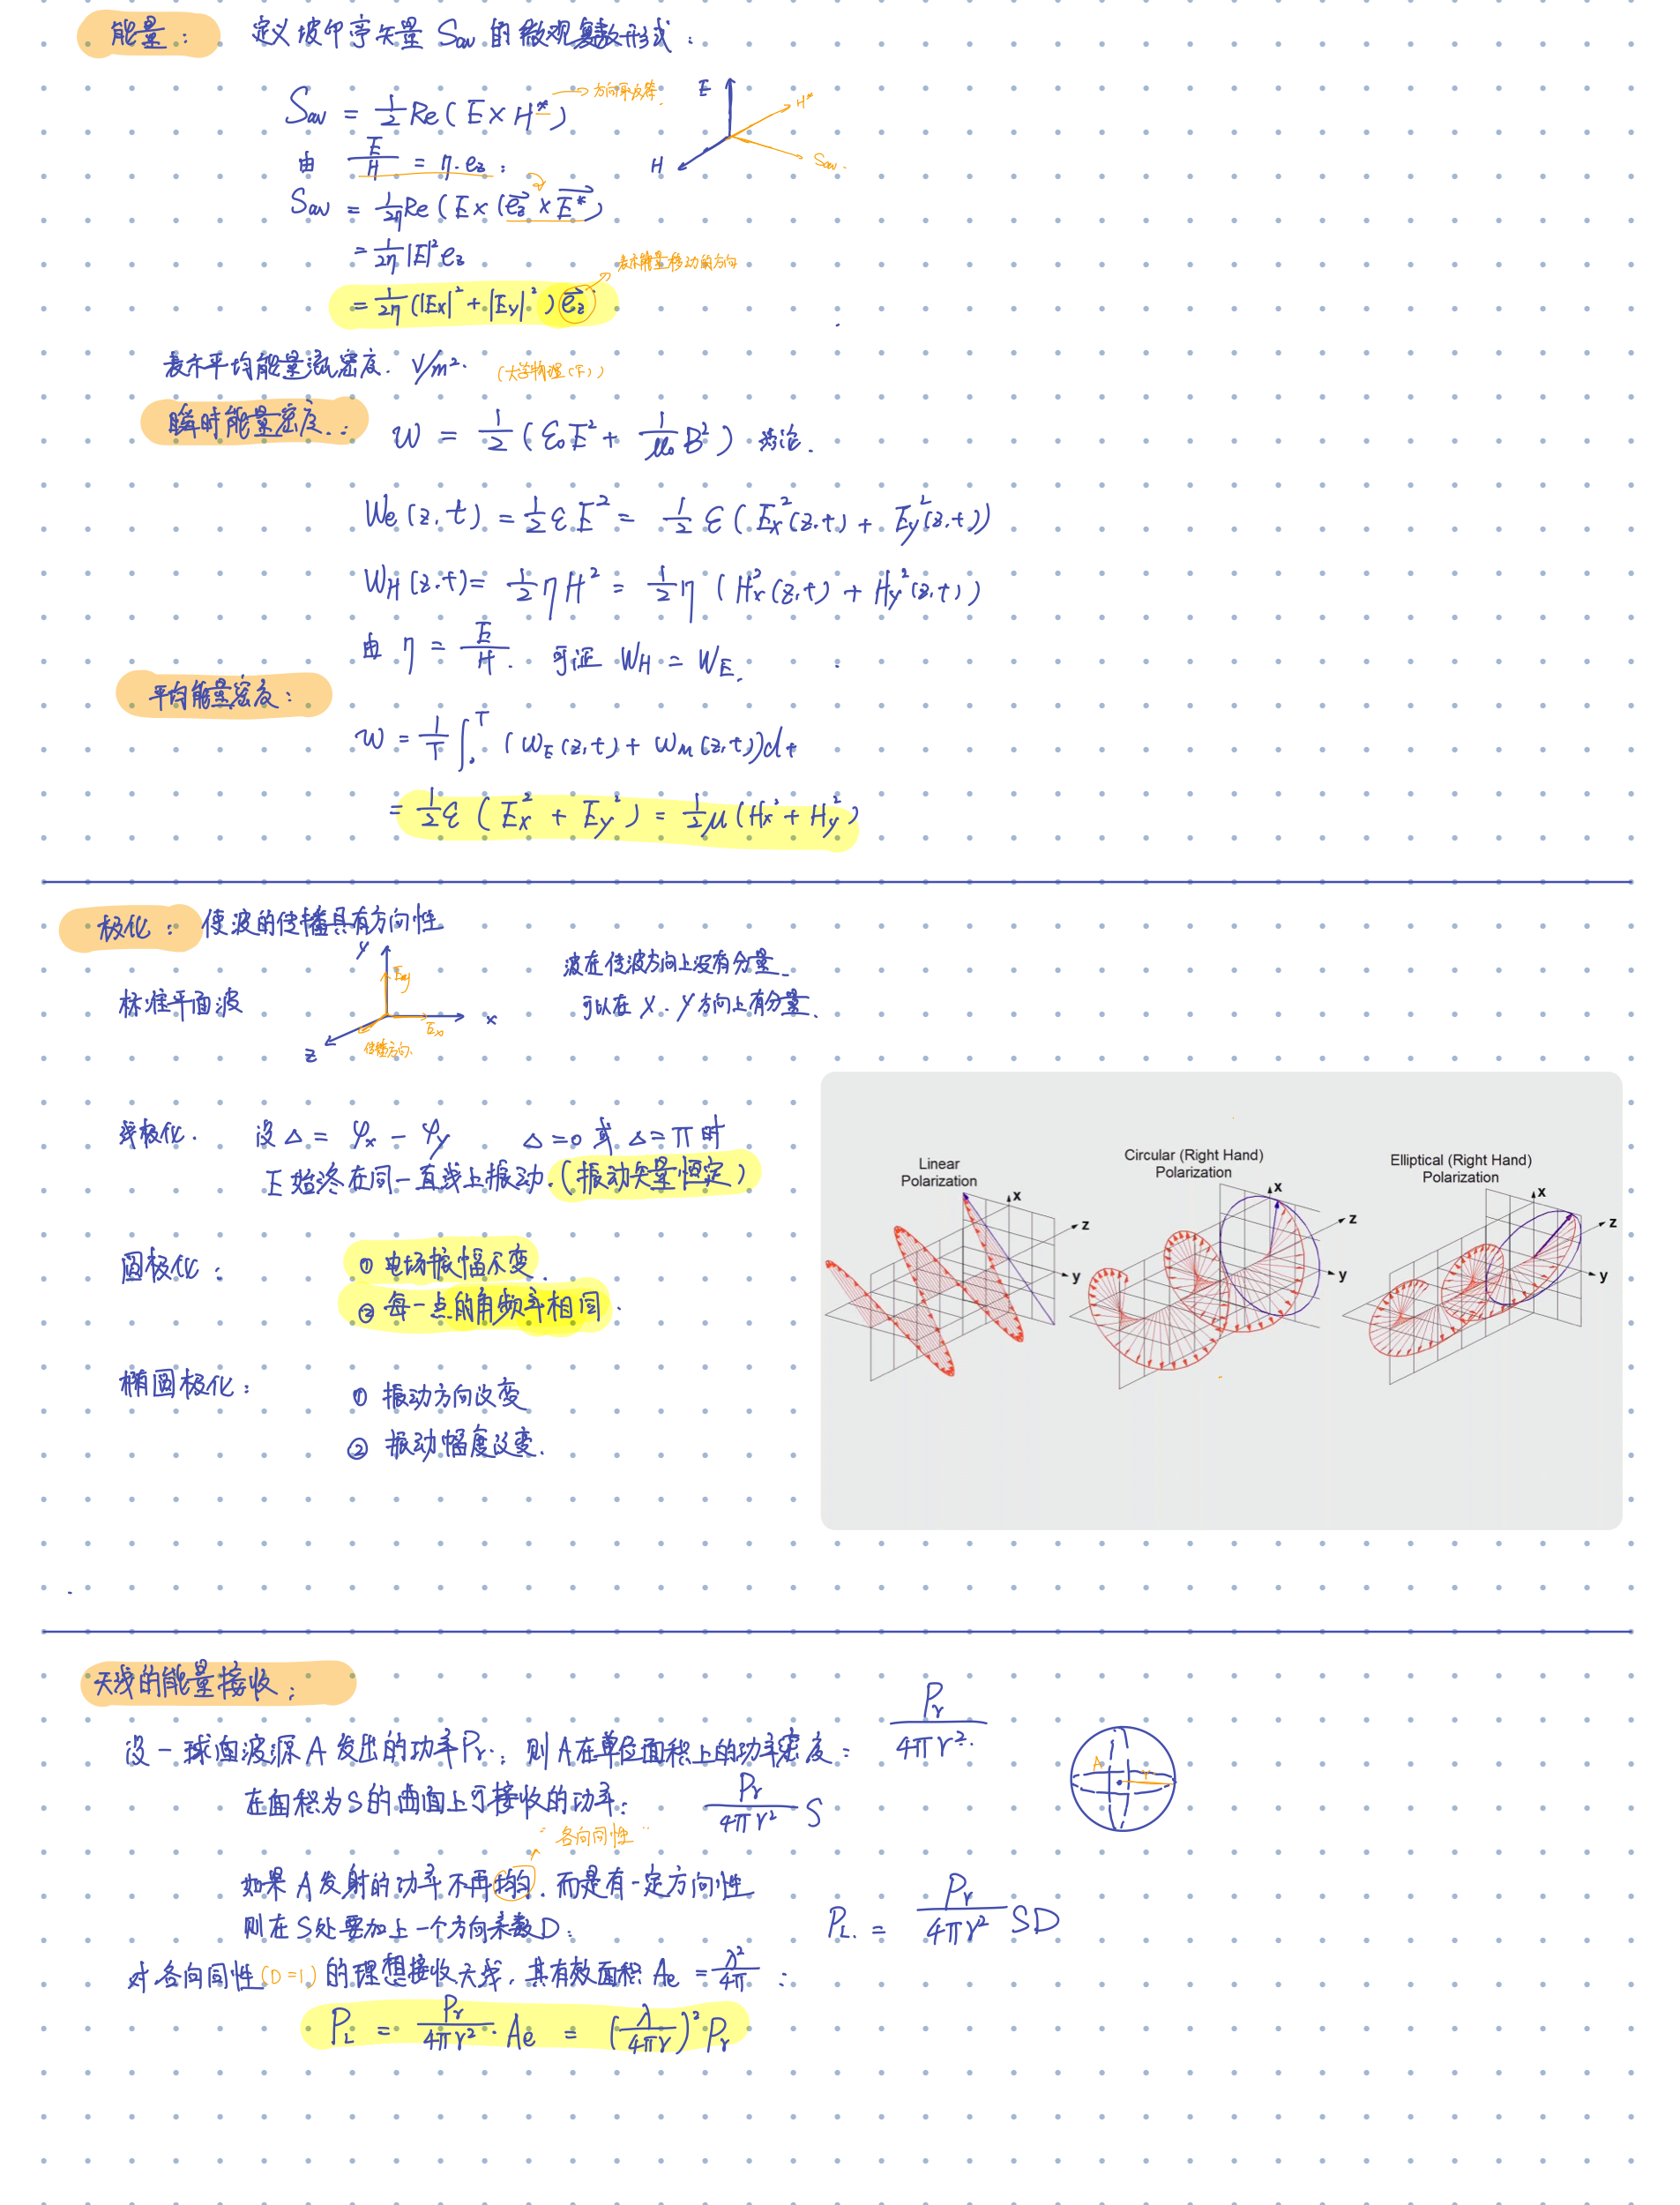 能量： 定义坡印亭矢量 Sav 的微观复数形式：
Sav = 1/2 Re ( E × H* ) → 方向取反等.
E H* H Sav.
由 E/H = η·ez :
Sav = 1/2η Re ( E × (ez × E*)
= 1/2η |E|² ez
表示能量移动的方向
= 1/2η (|Ex|² + |Ey|²) ez
表示平均能量流密度. V/m². (大学物理(下))
瞬时能量密度.: w = 1/2 ( ε₀E² + 1/μ₀ B² )
We (z.t) = 1/2 ε E² = 1/2 ε ( Ex²(z.t) + Ey²(z.t))
WH (z.t) = 1/2 η H² = 1/2 η ( Hx²(z,t) + Hy²(z,t) )
由 η = E/H. 可证 WH = WE.
平均能量密度：
w = 1/T ∫₀ᵀ ( wE (z,t) + wm (z,t))dt
= 1/2 ε ( Ex² + Ey² ) = 1/2 μ (Hx² + Hy²)
极化： 使波的传播具有方向性
标准平面波
y Ey x Ex z 传播方向.
波在传波方向上没有分量.
可以在 X. Y 方向上有分量.
线极化. 设 Δ = φx − φy Δ=0 或 Δ=π 时
E 始终在同一直线上振动.(振动矢量恒定)
圆极化： ① 电场振幅不变.
② 每一点的角频率相同.
椭圆极化： ① 振动方向改变
② 振动幅度改变.
Linear
Polarization
x
z
y
Circular (Right Hand)
Polarization
x
z
y
Elliptical (Right Hand)
Polarization
x
z
y
天线的能量接收：
设一球面波源 A 发出的功率Pr.; 则A在单位面积上的功率密度： Pr/4πr².
A r
在面积为S的曲面上可接收的功率: Pr/4πr² S
"各向同性"
如果 A 发射的功率不再均匀. 而是有一定方向性
则在S处要加上一个方向系数D: PL. = Pr/4πr² SD
对各向同性(D=1)的理想接收天线. 其有效面积 Ae = λ²/4π :
PL = Pr/4πr². Ae = (λ/4πr)² Pr